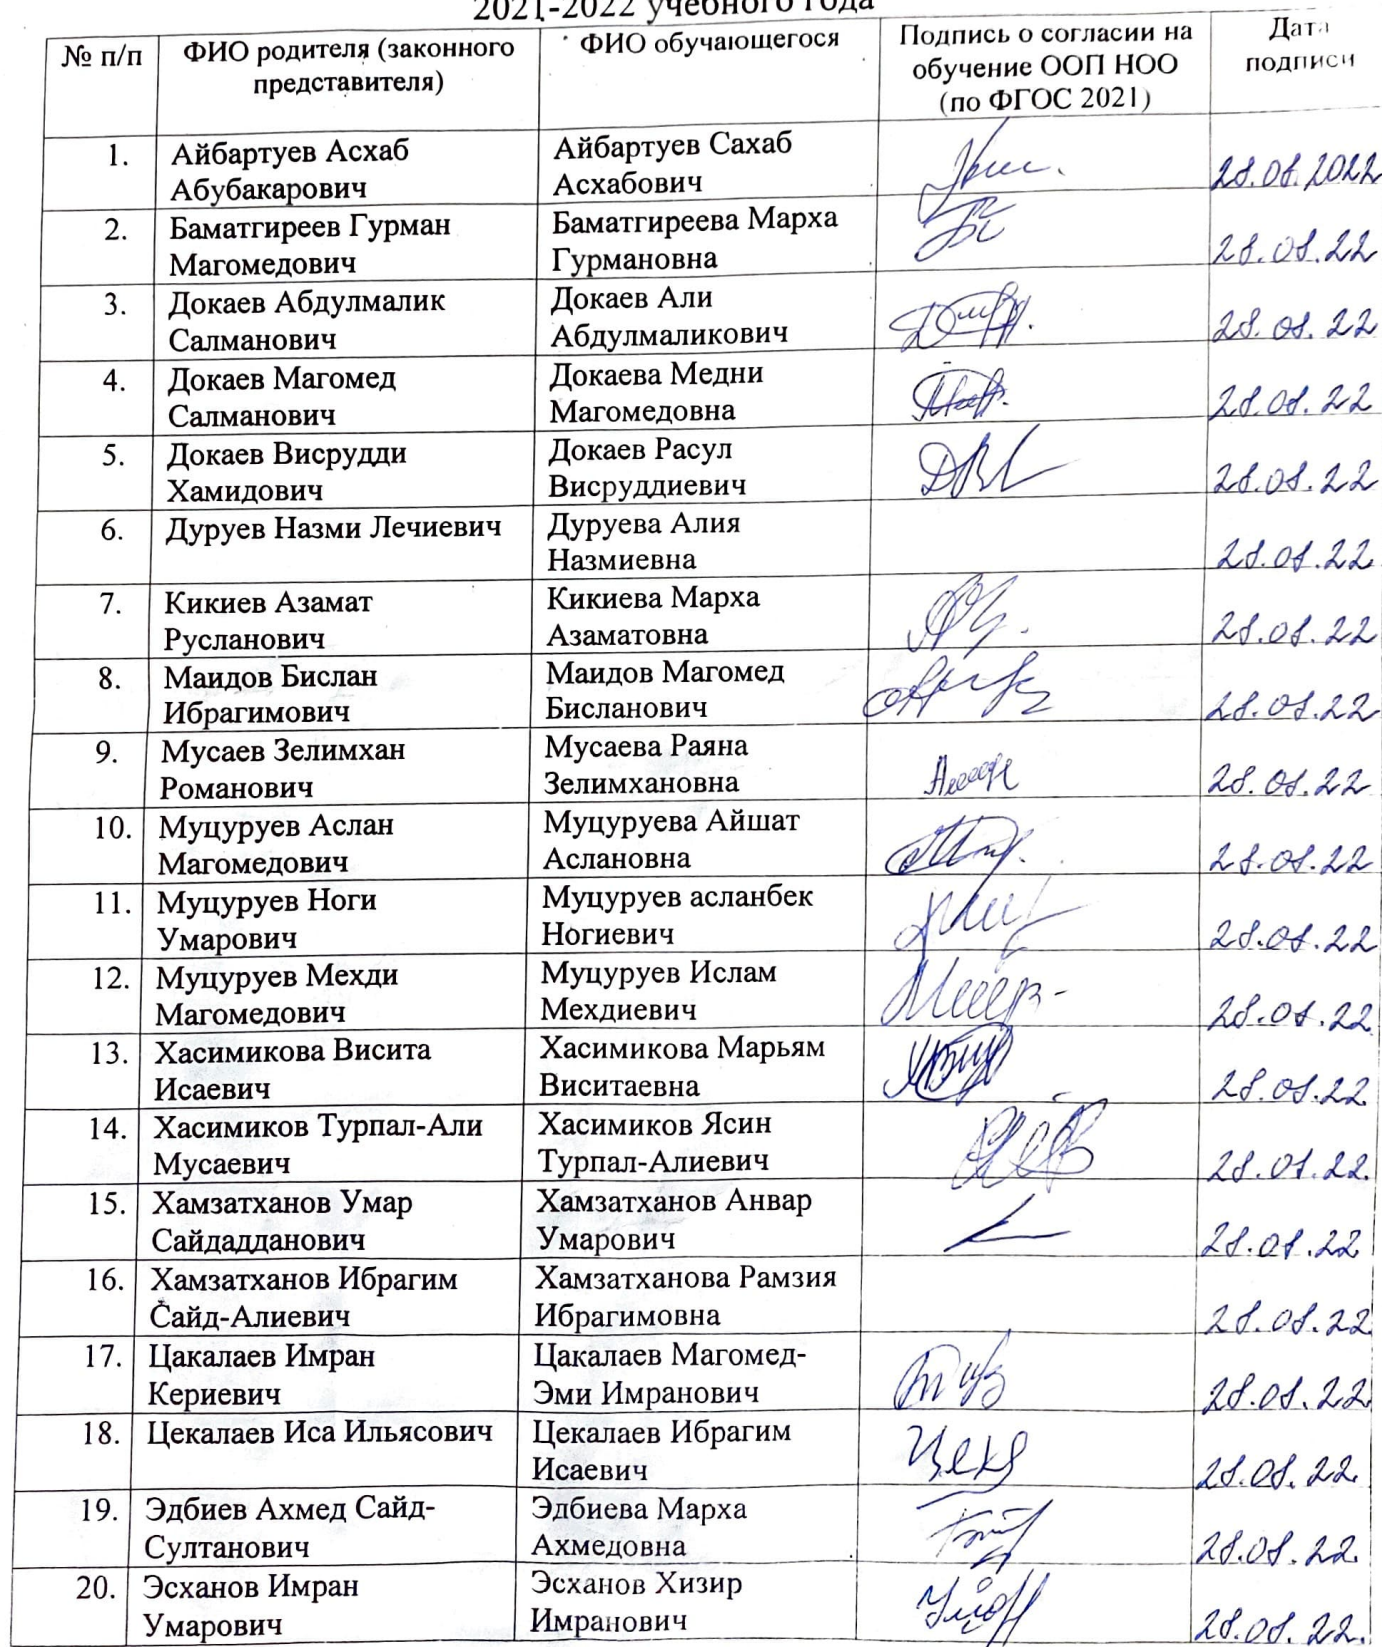 2021-2022 учебного года
№ п/п
ФИО родителя (законного
представителя)
ФИО обучающегося
Подпись о согласии на
обучение ООП НОО
(по ФГОС 2021)
Дата
подписи
1.
Айбартуев Асхаб
Абубакарович
Айбартуев Сахаб
Асхабович
28.08.2022
2.
Баматгиреев Гурман
Магомедович
Баматгиреева Марха
Гурмановна
28.08.22
3.
Докаев Абдулмалик
Салманович
Докаев Али
Абдулмаликович
28.08.22
4.
Докаев Магомед
Салманович
Докаева Медни
Магомедовна
28.08.22
5.
Докаев Висрудди
Хамидович
Докаев Расул
Висруддиевич
28.08.22
6.
Дуруев Назми Лечиевич
Дуруева Алия
Назмиевна
28.08.22
7.
Кикиев Азамат
Русланович
Кикиева Марха
Азаматовна
28.08.22
8.
Маидов Бислан
Ибрагимович
Маидов Магомед
Бисланович
28.08.22
9.
Мусаев Зелимхан
Романович
Мусаева Раяна
Зелимхановна
28.08.22
10.
Муцуруев Аслан
Магомедович
Муцуруева Айшат
Аслановна
28.08.22
11.
Муцуруев Ноги
Умарович
Муцуруев асланбек
Ногиевич
28.08.22
12.
Муцуруев Мехди
Магомедович
Муцуруев Ислам
Мехдиевич
28.08.22
13.
Хасимикова Висита
Исаевич
Хасимикова Марьям
Виситаевна
28.08.22
14.
Хасимиков Турпал-Али
Мусаевич
Хасимиков Ясин
Турпал-Алиевич
28.08.22.
15.
Хамзатханов Умар
Сайдадданович
Хамзатханов Анвар
Умарович
28.08.22
16.
Хамзатханов Ибрагим
Сайд-Алиевич
Хамзатханова Рамзия
Ибрагимовна
28.08.22
17.
Цакалаев Имран
Кериевич
Цакалаев Магомед-
Эми Имранович
28.08.22
18.
Цекалаев Иса Ильясович
Цекалаев Ибрагим
Исаевич
28.08.22.
19.
Эдбиев Ахмед Сайд-
Султанович
Эдбиева Марха
Ахмедовна
28.08.22.
20.
Эсханов Имран
Умарович
Эсханов Хизир
Имранович
28.08.22.